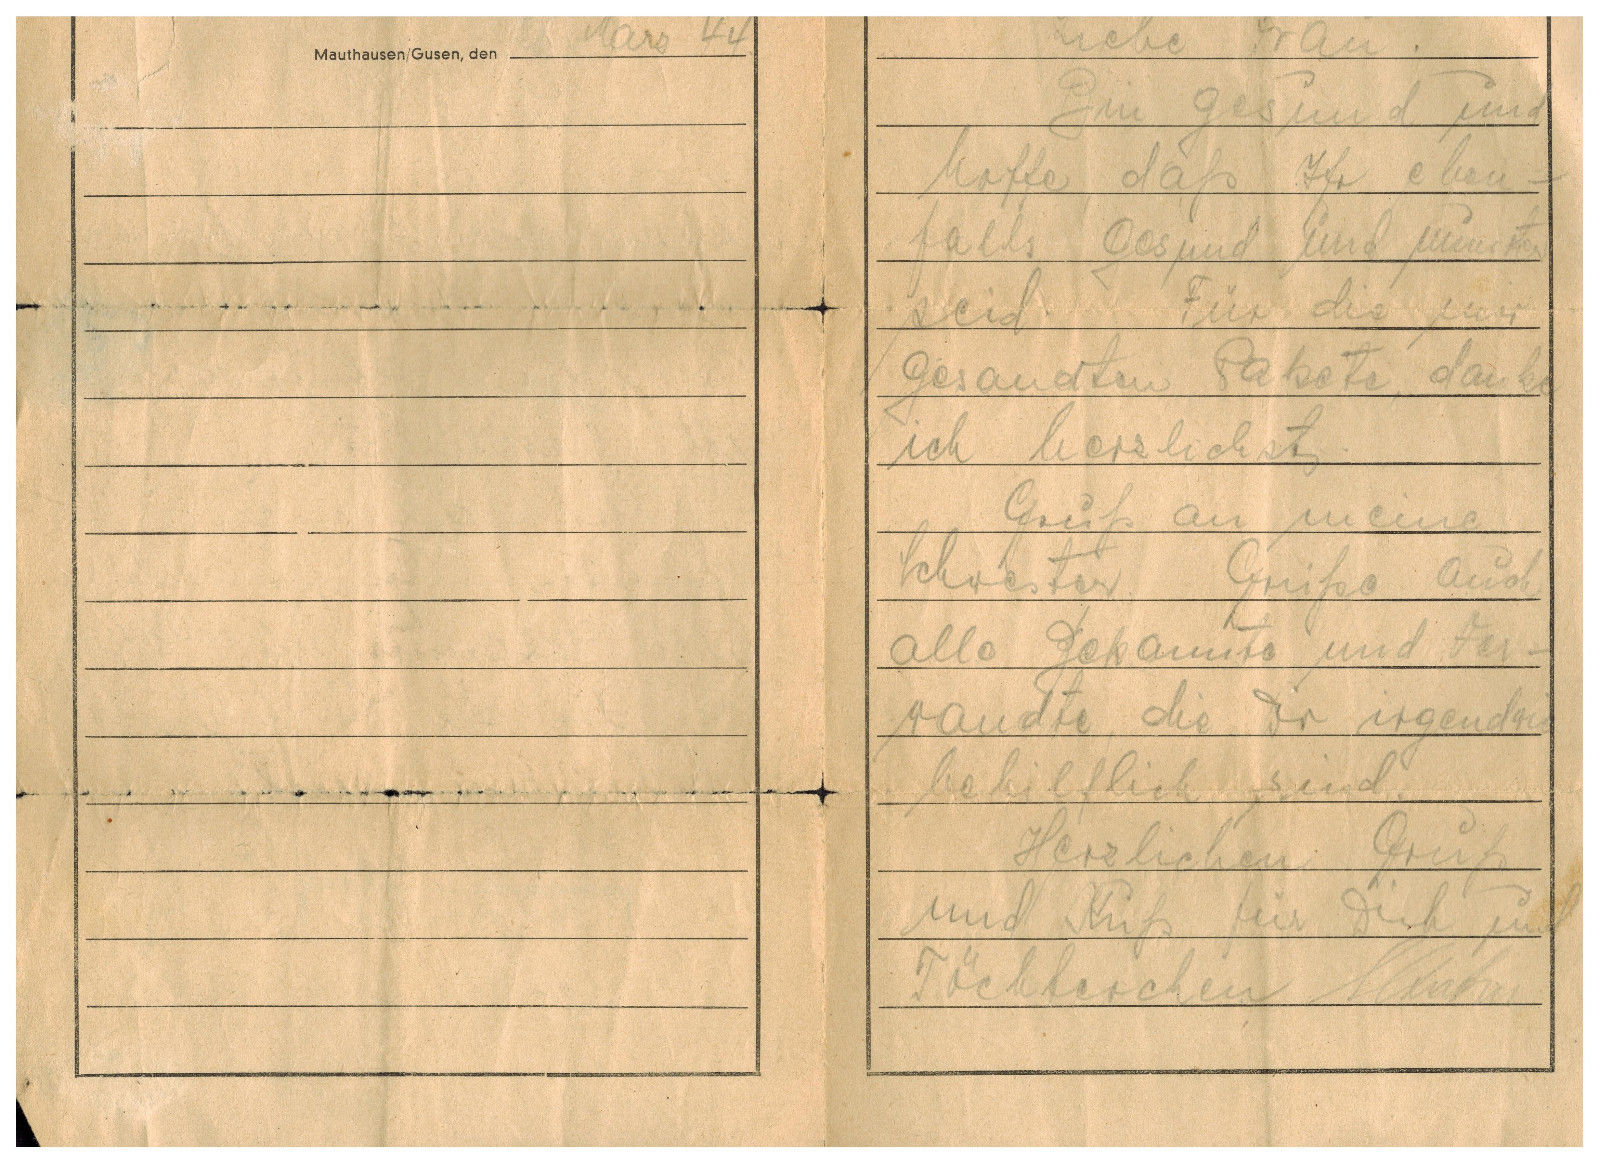 Mauthausen/Gusen, den März 44
Liebe Frau.
Bin gesund und
hoffe daß Ihr eben-
falls gesund und munter
seid. Für die mir
gesandten Pakete danke
ich herzlichst.
Gruß an meine
Schwester. Grüße auch
alle Bekannte und Ver-
wandte die Dir irgendwie
behilflich sind.
Herzlichen Gruß
und Kuß für Dich und
Töchterchen